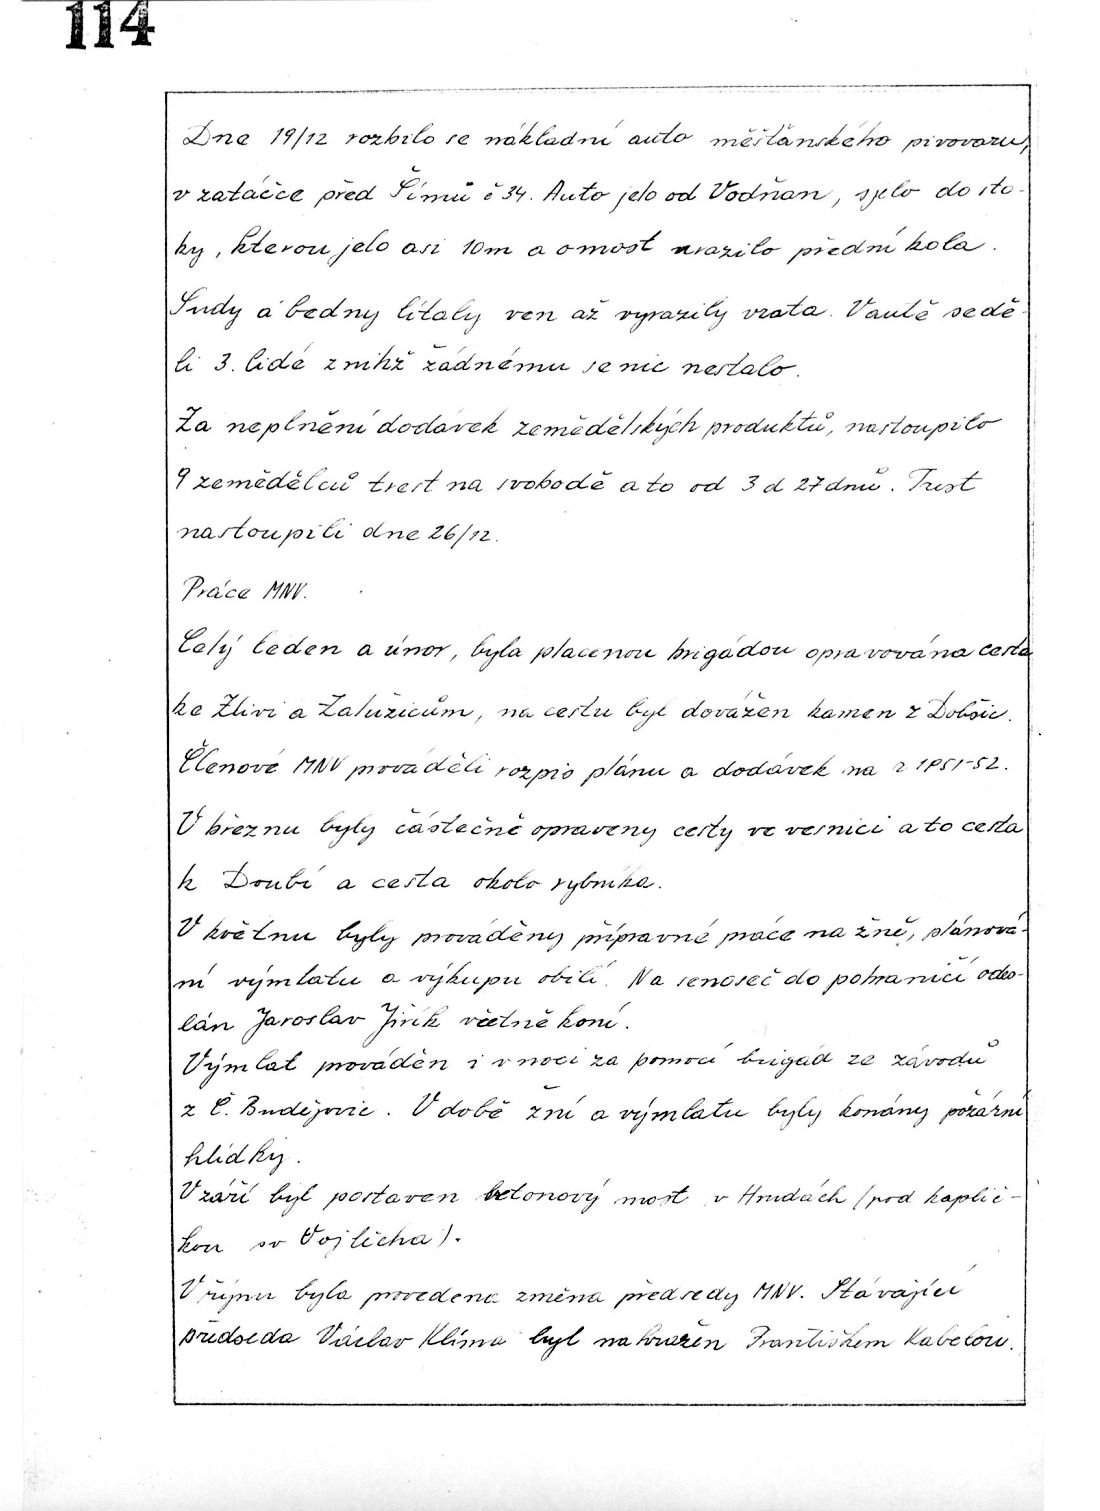 114
Dne 19/12 rozbilo se nákladní auto měšťánského pivovaru,
v zatáčce před Šímů č 34. Auto jelo od Vodňan, sjelo do sto-
ky, kterou jelo asi 10m a o most urazilo přední kola.
Sudy a bedny lítaly ven až vyrazily vrata. V autě sedě-
li 3. lidé z nihž žádnému se nic nestalo.
Za neplnění dodávek zemědělských produktů, nastoupilo
9 zemědělců trest na svobodě a to od 3 d 27 dnů. Trest
nastoupili dne 26/12.
Práce MNV.
Celý leden a únor, byla placenou brigádou opravována cesta
ke Zlivi a Zalužicům, na cestu byl dovážen kamen z Dobšic.
Členové MNV prováděli rozpis plánu a dodávek na r 1951-52.
V březnu byly částečně opraveny cesty ve vesnici a to cesta
k Doubí a cesta okolo rybníka.
V květnu byly prováděny přípravné práce na žně, plánová-
ní výmlatu a výkupu obilí. Na senoseč do pohraničí odes-
lán Jaroslav Jiřík včetně koní.
Výmlat prováděn i v noci za pomocí brigád ze závodů
z Č. Budějovic. V době žní a výmlatu byly konány požární
hlídky.
V září byl postaven betonový most v Hrudách (pod kaplič-
kou sv Vojtěcha).
V říjnu byla provedena změna předsedy MNV. Stávající
předseda Václav Klíma byl nahražen Františkem Kabelou.